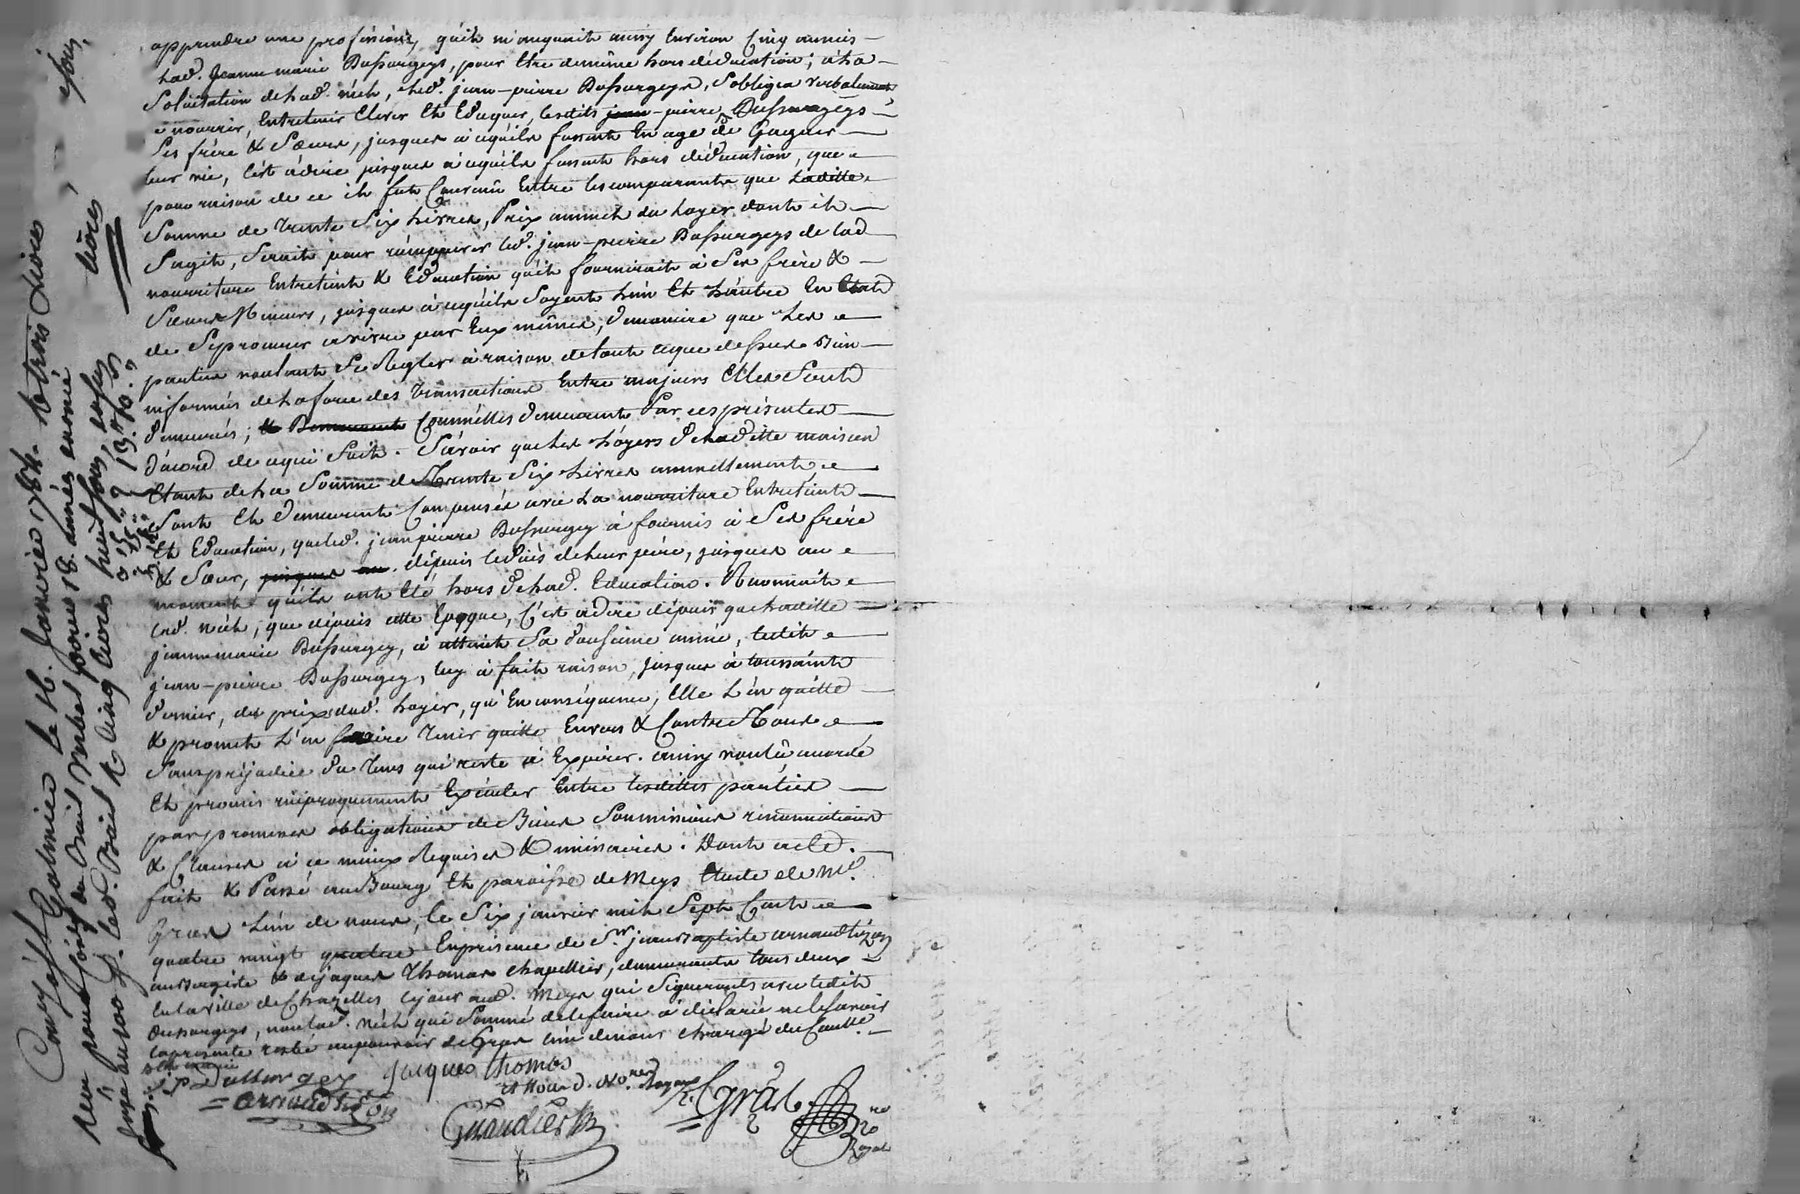 apprendre une profession, qu'il manquoit ainsy Environ Cinq années
lad. Jeanne marie Dussurgeys, pour être de même hors déducation; à la
Solicitation de lad. néel, led. jean-pierre Dussurgeys, S'obligea verbalement
a nourrir, Entretenir Elever Et Eduquer, lesdits jean-pierre Dussurgeys
Ses frère & Sœurs, jusques à cequ'ils fussent En age de Gagner
leur vie, C'est àdire jusques à cequ'ils fussent hors déducation, que
pour raison de ce il fut Convenu Entre les comparants que Laditte
Somme de trente Six Livres, Prix annuel du Loyer dont il
Sagit, Seroit pour recuperer led. jean-pierre Dussurgeys de lad
nourriture Entretient & Education qu'il fourniroit à Ses frère &
Sœurs Mineurs, jusques à cequ'ils Soyent L'un Et L'autre En Etat
de Seprocurer à vivre par Eux mêmes, demaniere que Les
parties voulants Se Regler à raison detout ceque dessus bien
informées de la force des transactions Entre majeurs Elles Sont
demeurées; & Demeurent Comm'elles demeurent Par ces présentes
D'acord de cequi Suit. Sçavoir que Les Loyers deladitte maison
Etant de La Somme de trente Six Livres annuellement
Sont Et demeurent Compensés avec La nourriture Entretient
Et Education, que led. jean pierre Dussurgey à fournis à Ses frère
& Sœur, jusques au. dépuis ledécès de leur père, jusques au
moment qu'ils ont Eté hors delad. Education. Reconnoit
lad. néel, que dépuis cette Epoque, C'est àdire dépuis que Laditte
jeanne marie Dussurgey, à atteint Sa douzieme année, ledit
jean-pierre Dussurgey, luy à fait raison, jusques à toussaint
dernier, du prix dud. Loyer, qu'En conséquence, Elle L'en quitte
& promet L'en faire tenir quitte Envers & Contre Tous
Sans préjudice du tems qui reste à Expirer. ainsy voulu accordé
Et promis reciproquement Exécuter Entre lesdittes parties
par promesses obligations de Biens Soumissions renonciations
& Clauses à ce mieux Requises & necessaires. Dont acte.
fait & Passé au Bourg Et paroisse de Meys Etude de Me.
Gras L'un de nous, le Six janvier mil Sept Cent
quatre vingt quatre En présence de Sr. jean baptiste arnaud tizon
aubergiste & de jaques Thomas chapellier, demeurants tous deux
En la ville de Chazelles cejour aud. Meys qui Signeront avec ledit
Dussurgeys, non lad. néel qui Sommé delefaire à déclaré nele Savoir
la présente resté aupouvoir de Gras L'un denous chargé du Contle.
J P Dussurgey jaques thomas
arnaud tizon
Gras
Royal
Controllé à St Galmier Le 16. Janvier 1784. & trois Livres